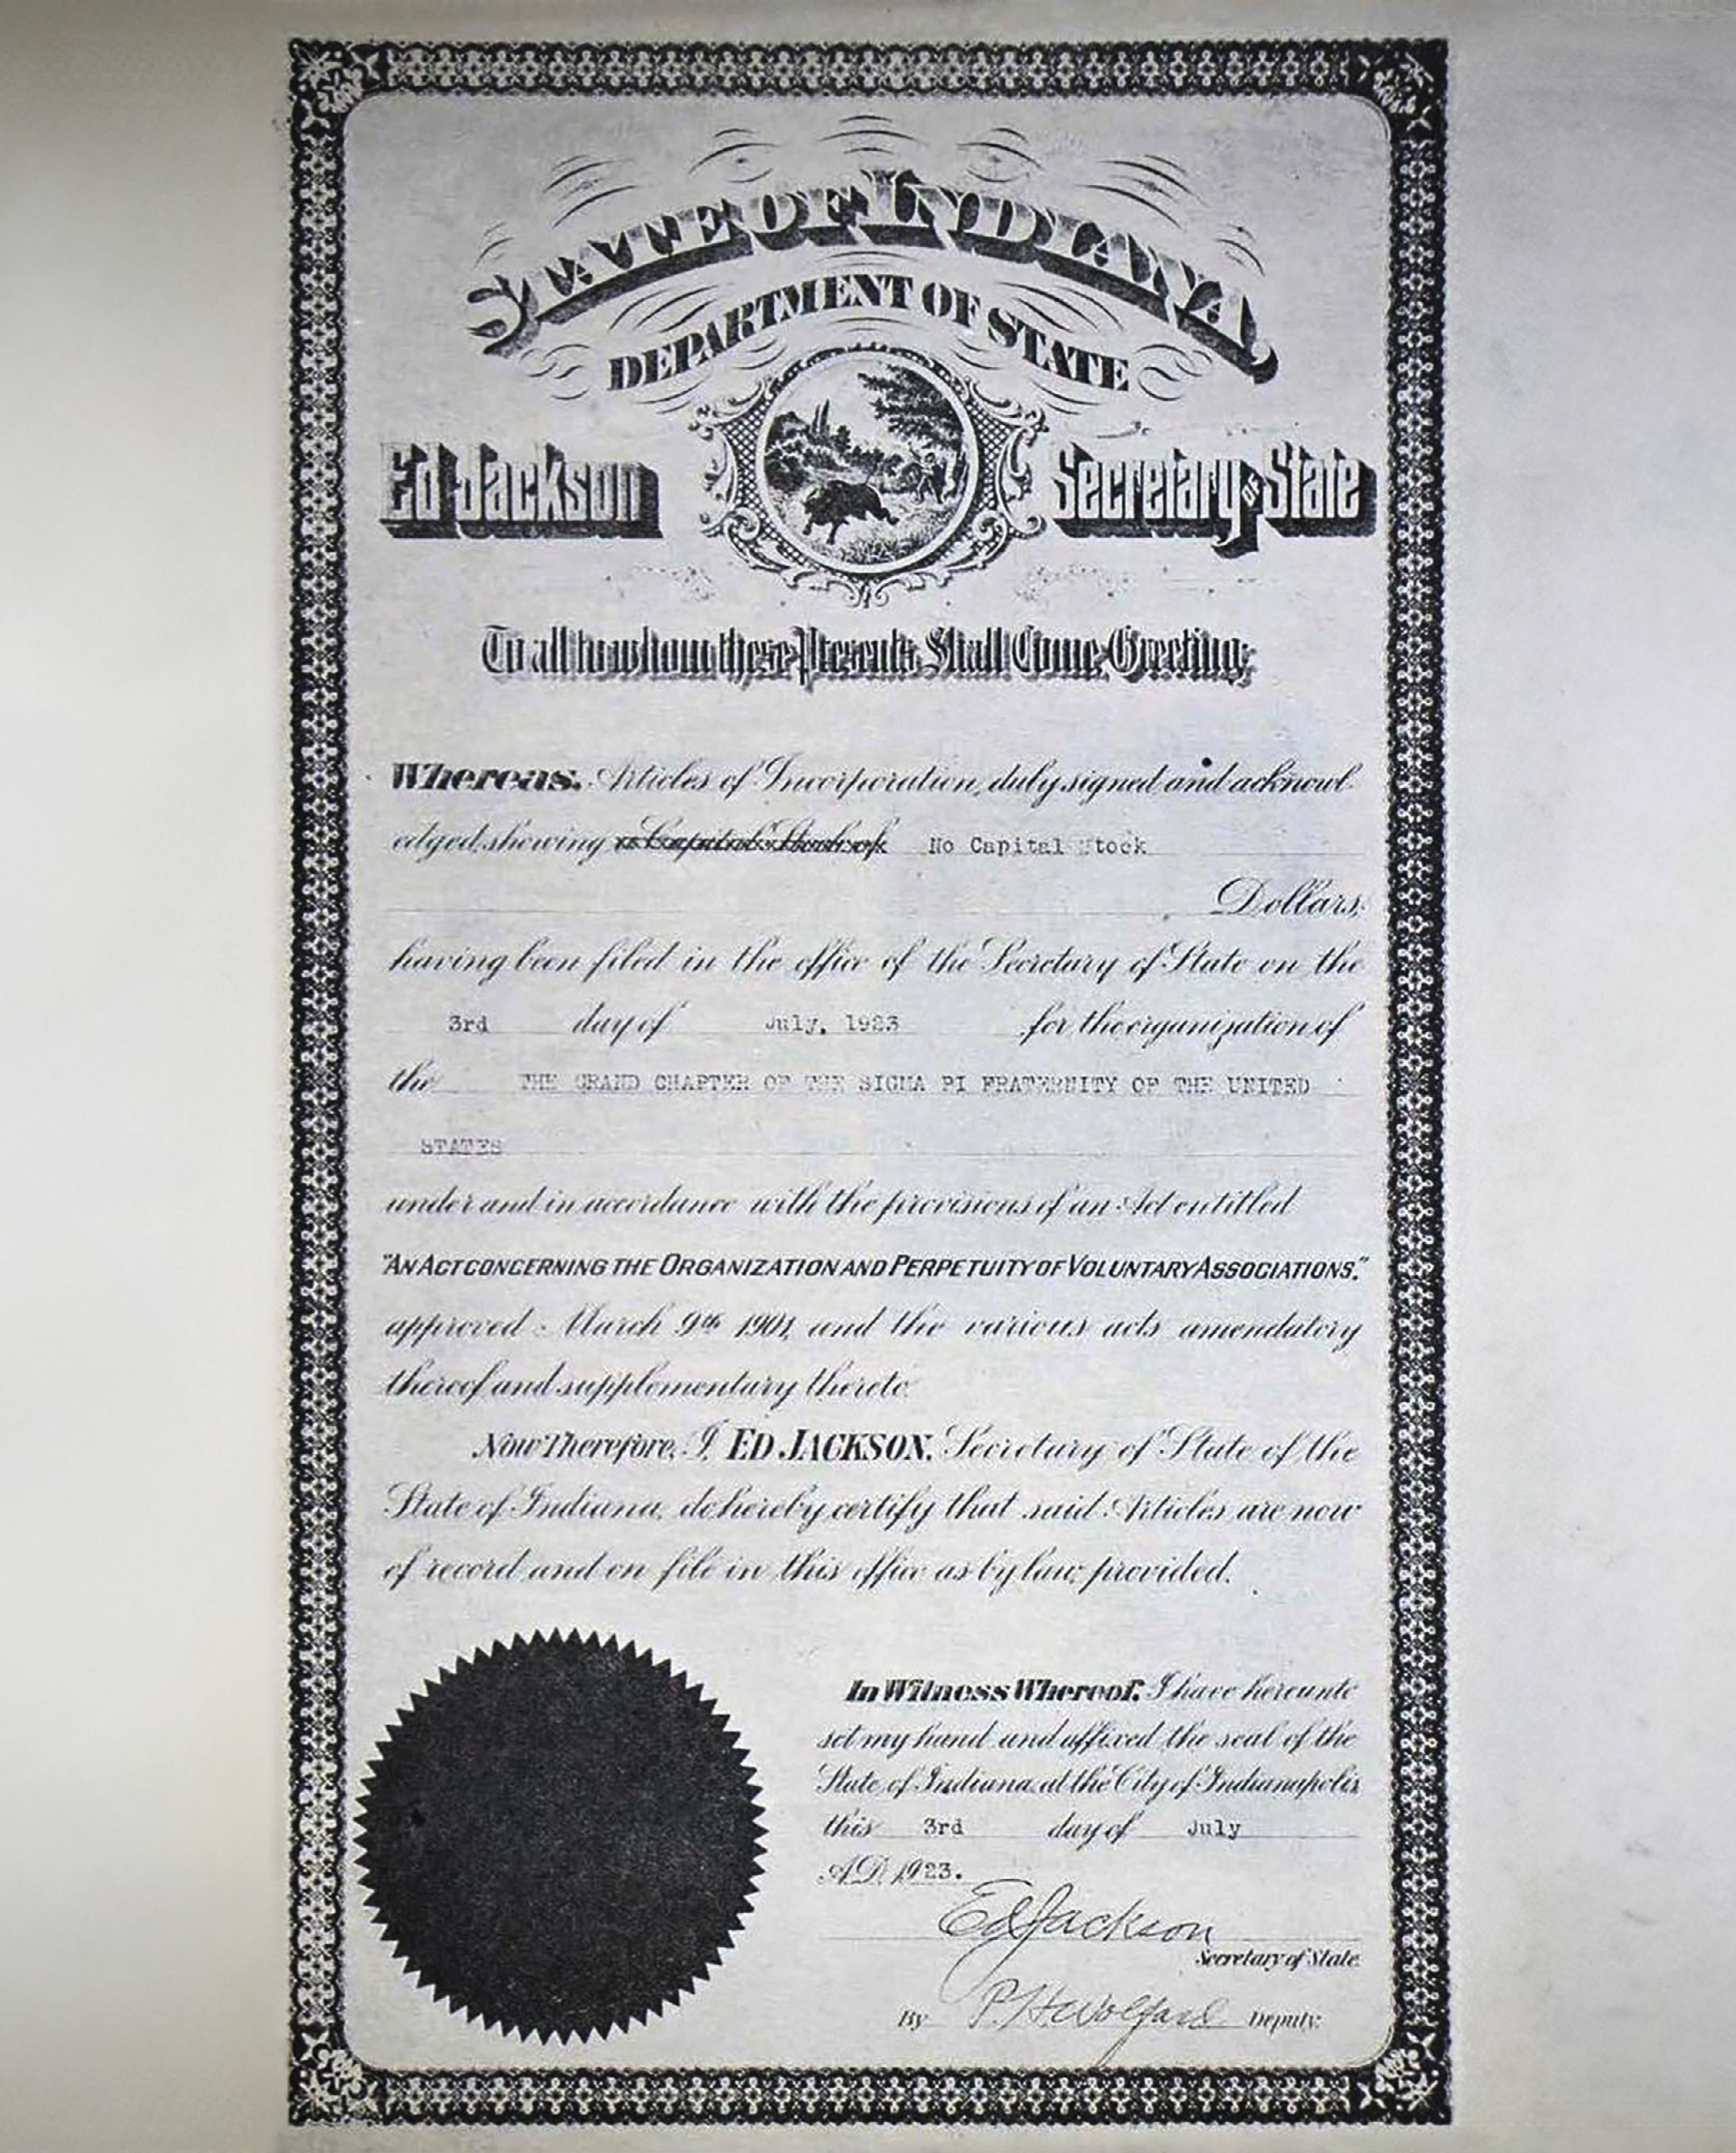 STATE OF INDIANA
DEPARTMENT OF STATE
Ed Jackson Secretary of State
To all to whom these Presents Shall Come, Greeting:
Whereas, Articles of Incorporation, duly signed and acknowl-
edged, showing a Capital Stock of No Capital Stock
Dollars,
having been filed in the office of the Secretary of State on the
3rd day of July, 1923 for the organization of
the THE GRAND CHAPTER OF THE SIGMA PI FRATERNITY OF THE UNITED
STATES
under and in accordance with the provisions of an Act entitled
"AN ACT CONCERNING THE ORGANIZATION AND PERPETUITY OF VOLUNTARY ASSOCIATIONS."
approved March 9th 1901, and the various acts amendatory
thereof and supplementary thereto.
Now Therefore, I, ED JACKSON, Secretary of State of the
State of Indiana, do hereby certify that said Articles are now
of record and on file in this office as by law provided.
In Witness Whereof, I have hereunto
set my hand and affixed the seal of the
State of Indiana, at the City of Indianapolis,
this 3rd day of July
A.D. 1923.
Ed Jackson
Secretary of State.
By Deputy.